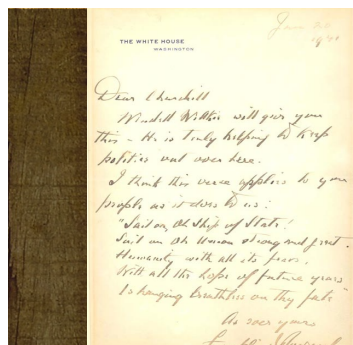 THE WHITE HOUSE
WASHINGTON
Jan 20
1941
Dear Churchill
Wendell Willkie will give you
this - He is truly helping to keep
politics out over here.
I think this verse applies to you
people as it does to us:
"Sail on, Oh Ship of State!
Sail on Oh Union strong and great.
Humanity with all its fears,
With all the hope of future years
Is hanging breathless on thy fate"
As ever yours